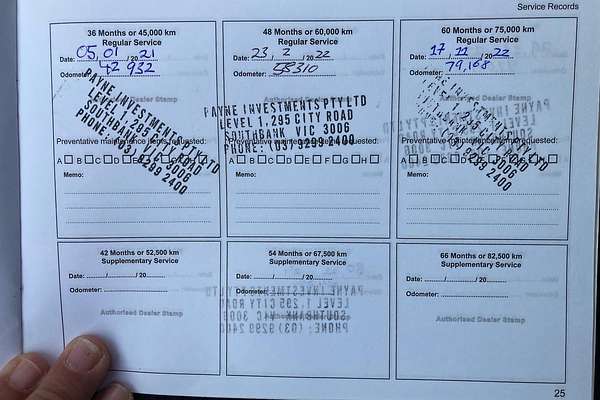 Service Records
36 Months or 45,000 km
Regular Service
Date: 05, 01 /20 21
Odometer: 42 932
Authorised Dealer Stamp
PAYNE INVESTMENTS PTY LTD
LEVEL 1, 295 CITY ROAD
SOUTHBANK VIC 3006
PHONE: (03) 9299 2400
Preventative maintenance items requested:
A B C D E F G H
Memo:
48 Months or 60,000 km
Regular Service
Date: 23, 2 /20 22
Odometer: 58310
PAYNE INVESTMENTS PTY LTD
LEVEL 1, 295 CITY ROAD
SOUTHBANK VIC 3006
PHONE: (03) 9299 2400
Preventative maintenance items requested:
A B C D E F G H
Memo:
60 Months or 75,000 km
Regular Service
Date: 17, 11 /20 22
Odometer: 79,168
Authorised Dealer Stamp
PAYNE INVESTMENTS PTY LTD
LEVEL 1, 295 CITY ROAD
SOUTHBANK VIC 3006
PHONE: (03) 9299 2400
Preventative maintenance items requested:
A B C D E F G H
Memo:
42 Months or 52,500 km
Supplementary Service
Date: ....../....../20......
Odometer:
Authorised Dealer Stamp
54 Months or 67,500 km
Supplementary Service
Date: ....../....../20......
Odometer:
PAYNE INVESTMENTS PTY LTD
LEVEL 1, 295 CITY ROAD
SOUTHBANK VIC 3006
PHONE: (03) 9299 2400
66 Months or 82,500 km
Supplementary Service
Date: ....../....../20......
Odometer:
Authorised Dealer Stamp
25